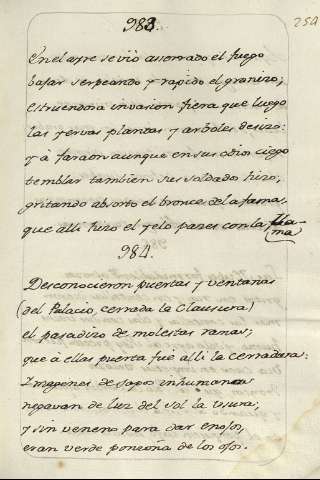 983.
252
En el ayre se vió asserrado el fuego
bajar serpeando y rapido el granizo;
estruendosa invasion fiera que luego
las yervas plantas y arboles deshizo:
y à faraon aunque en sus odios ciego
temblar tambien sus soldado hizo,
gritando absorto el bronce de la fama,
que alli hizo el yelo pazes con la llama
984.
Desconocieron puertas y ventanas
(del Palacio, cerrada la Clausura)
el pasadizo de molestas ranas;
que à ellas puerta fuè alli la cerradura:
Imagenes de sapos inhumanas
negavan de luz del sol la usura,
y sin veneno para dar enojos,
eran verde ponzoña de los ojos.